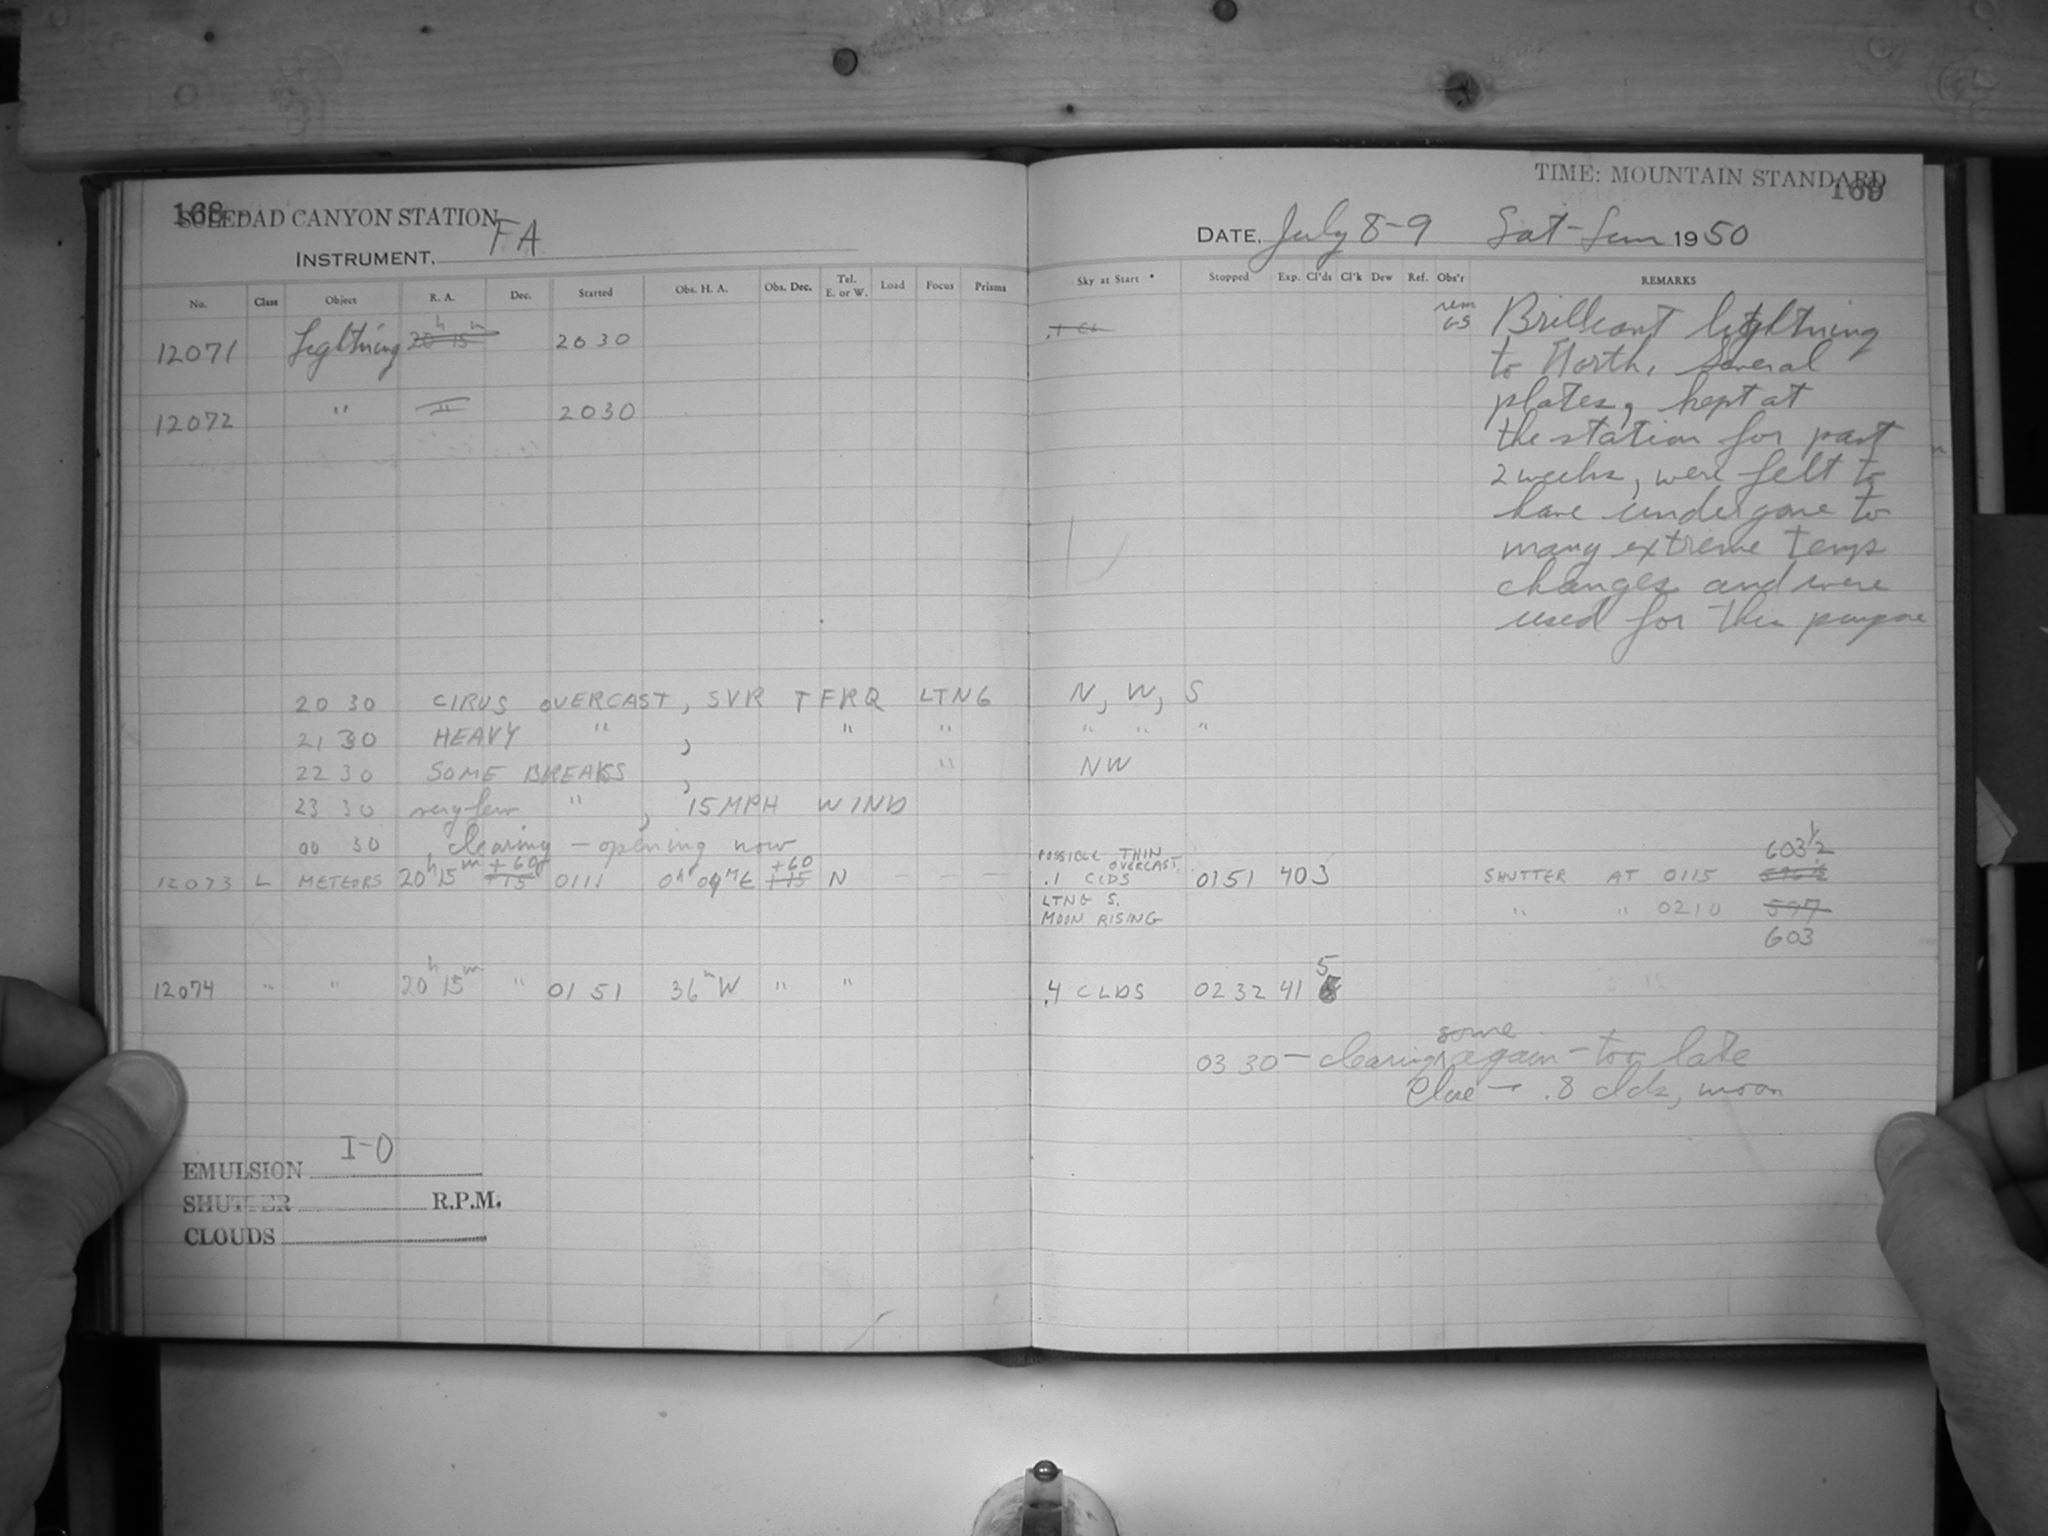 168
SOLEDAD CANYON STATION
INSTRUMENT. FA
No. Class Object R. A. Dec. Started Obs. H. A. Obs. Dec. Tel. E. or W. Load Focus Prisms
12071 Lightning 20h 15m 2030
12072 " " 2030
20 30 CIRUS OVERCAST, SVR T FRQ LTNG N, W, S
21 30 HEAVY " , " " " " "
22 30 SOME BREAKS , " NW
23 30 very few " , 15 MPH WIND
00 30 clearing – opening now
12073 L METEORS 20h 15m +60 +15 0111 0h 04mE +60 +15 N – – –
12074 " " 20h 15m " 01 51 36mW " "
EMULSION I-O
SHUTTER R.P.M.
CLOUDS
TIME: MOUNTAIN STANDARD
169
DATE. July 8-9 Sat-Sun 1950
Sky at Start Stopped Exp. Cl'ds Cl'k Dew Ref. Obs'r REMARKS
Brilliant lightning
to North. Several
plates, kept at
the station for past
2 weeks, were felt to
have undergone to
many extreme temp
changes and were
used for this purpose
POSSIBLE THIN
OVERCAST,
.1 CLDS 0151 40 3 SHUTTER AT 0115 603 1/2 596 1/2
LTNG S. " " 0210 597
MOON RISING
603
.4 CLDS 0232 41 5
03 30 – clearing some again – too late
Close – .8 clds, moon